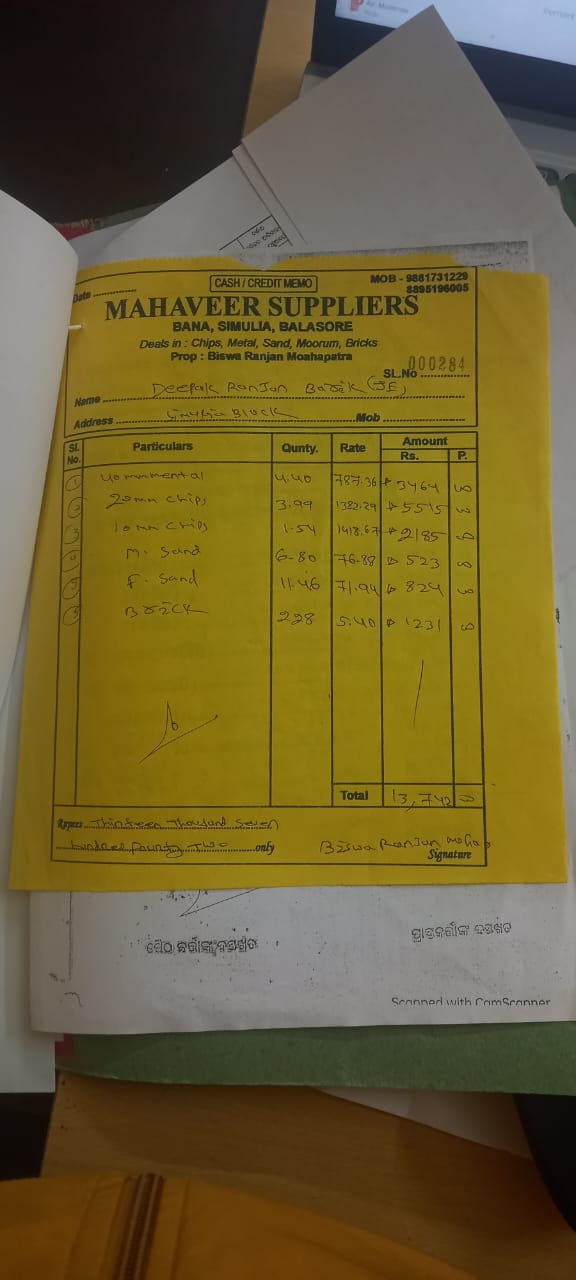 CASH / CREDIT MEMO
MOB - 9861731229
8895196005
Date
MAHAVEER SUPPLIERS
BANA, SIMULIA, BALASORE
Deals in : Chips, Metal, Sand, Moorum, Bricks
Prop : Biswa Ranjan Moahapatra
SL.No 000284
Name Deepak Ranjan Barik (JE)
Address Simulia Block Mob
Sl. No. Particulars Qunty. Rate Amount Rs. P.
1 40 mm metal 4.40 787.36 3464 00
2 20mm chips 3.99 1382.29 5515 00
3 10 mm chips 1.54 1418.67 2185 00
4 M. Sand 6.80 76.88 523 00
5 F. Sand 11.46 71.94 824 00
6 Brick 228 5.40 1231 00
Total 13,742 00
Rupees Thirteen Thousand Seven
hundred fourty Two only
Biswa Ranjan
Signature
ପ୍ରାପ୍ତକର୍ତ୍ତାଙ୍କ ଦସ୍ତଖତ
Scanned with CamScanner